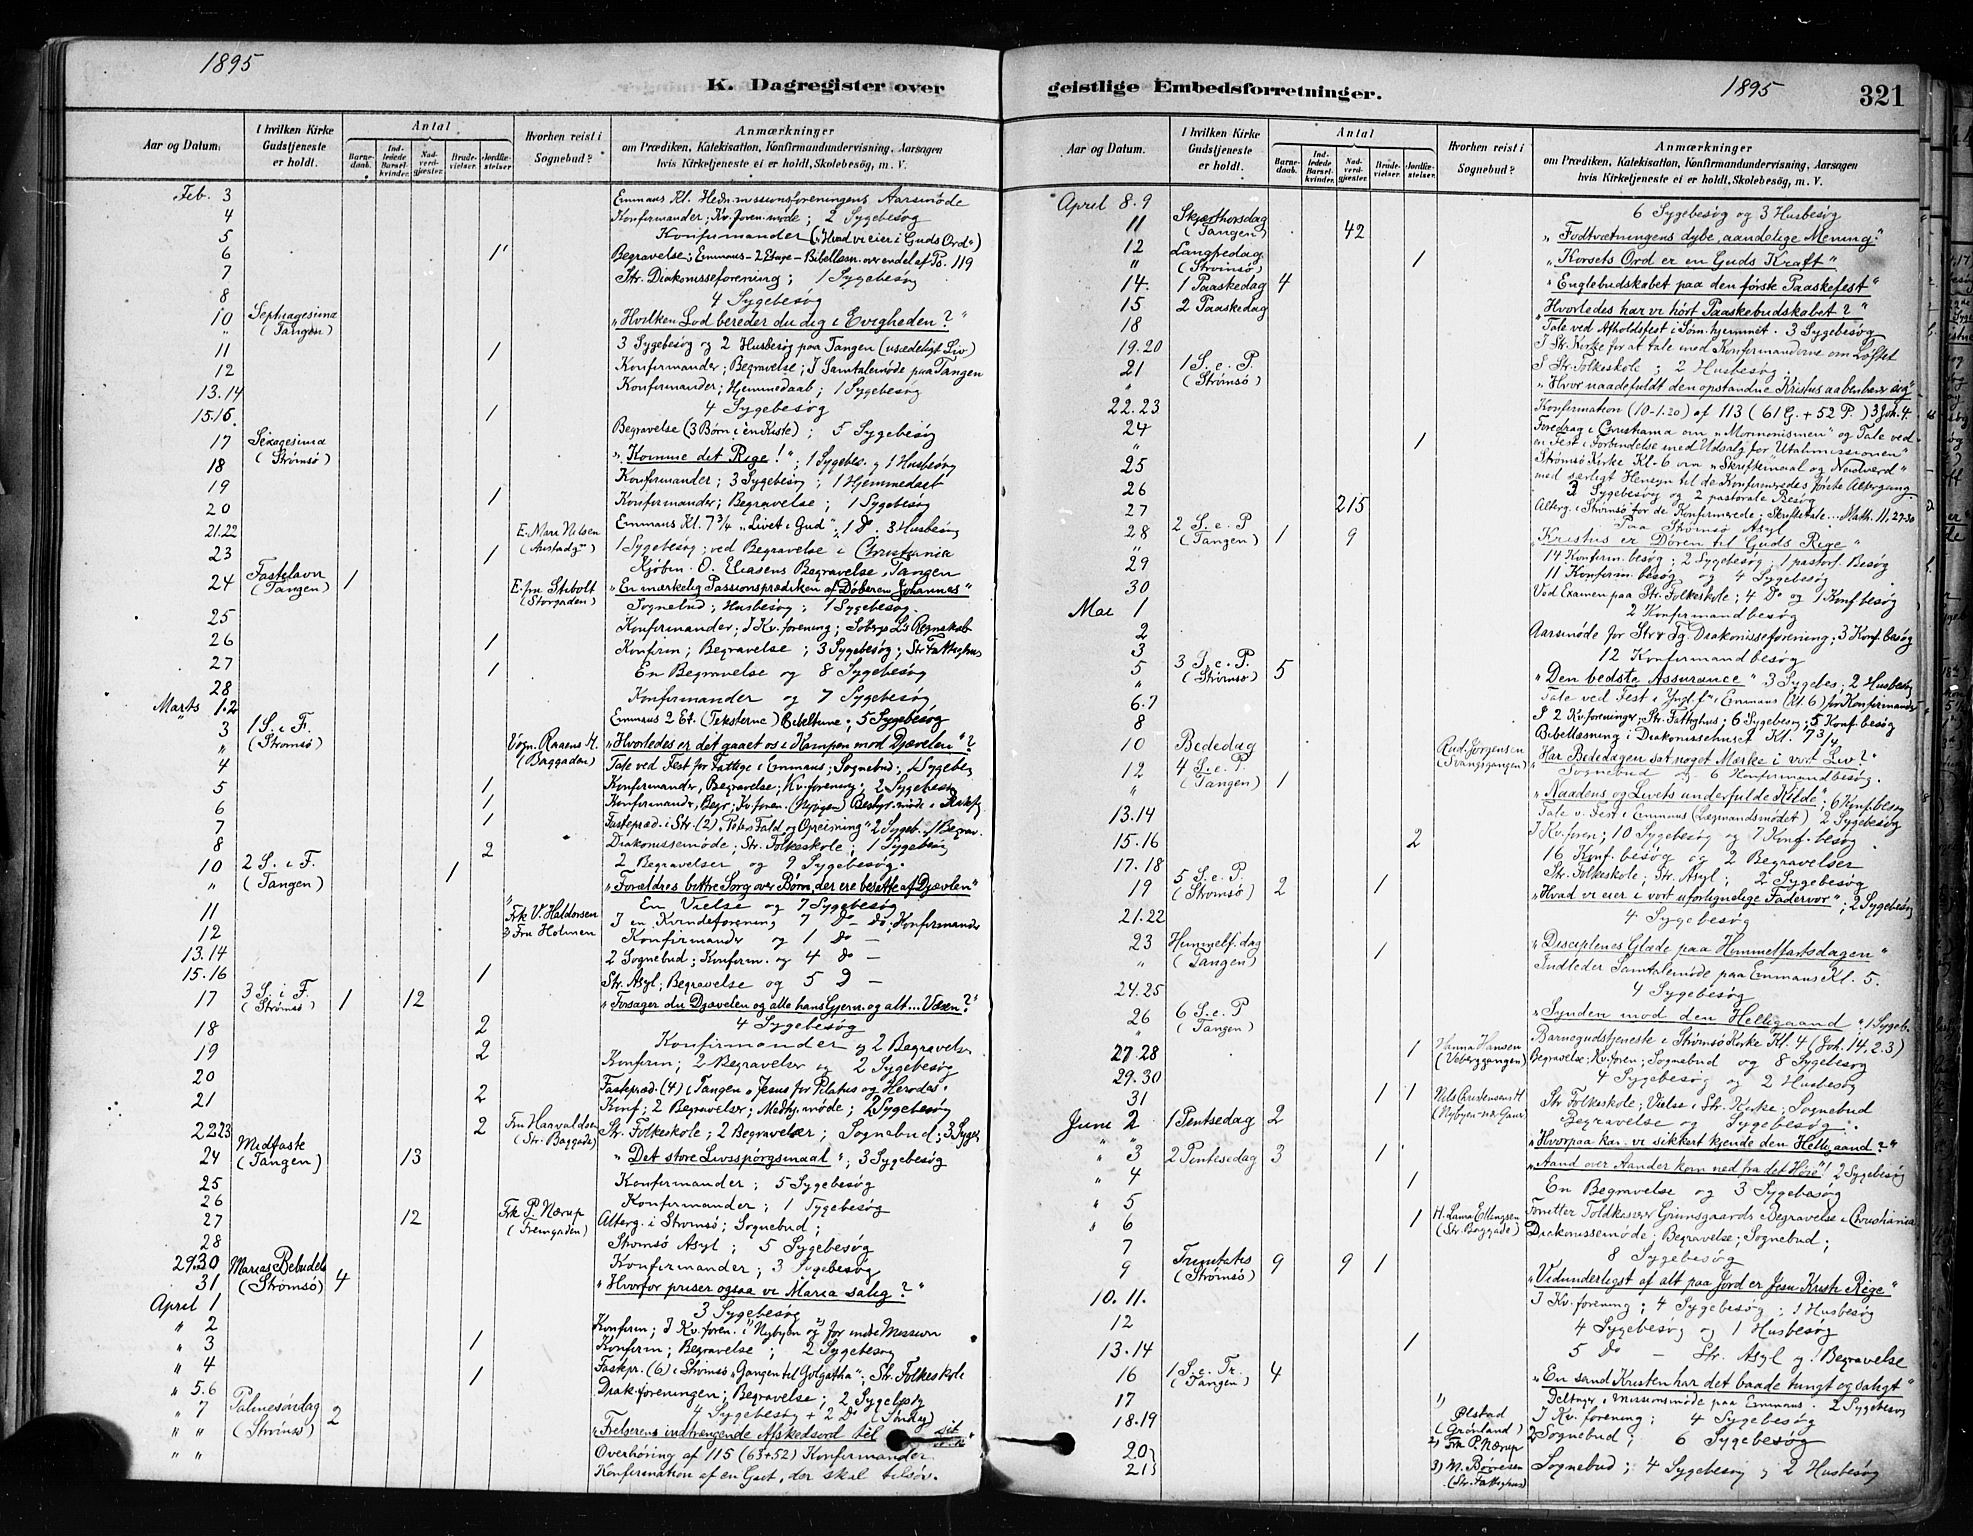 1895
K. Dagregister over
Aar og Datum.
I hvilken Kirke Gudstjeneste er holdt.
Antal
Barnedaab.
Indledede Barselkvinder.
Nadverdgjæster.
Brudevielser.
Jordfæstelser
Hvorhen reist i Sognebud?
Anmærkninger
om Prædiken, Katekisation, Konfirmandundervisning, Aarsagen
hvis Kirketjeneste ei er holdt, Skolebesøg, m. V.
Feb. 3 Emmaus Kl. Hedn. missionsforeningens Aarsmøde
4 Konfirmander; Kv. foren. møde; 2 Sygebesøg
5 Konfirmander („Hvad vi eier i Guds Ord“)
6 1 Begravelse; Emmaus - 2 Etage - Bibellæsn. over endel af Ps. 119
7 Str. Diakonisseforening; 1 Sygebesøg
8 4 Sygebesøg
10 Septuagesima „Hvilken Lod bereder du dig i Evigheden?“
„ (Tangen) 3 Sygebesøg og 2 Husbesøg paa Tangen (usædeligt Liv)
11 1 Konfirmander; Begravelse; I Samtalemøde paa Tangen
12 Konfirmander; Hjemmedaab; 1 Sygebesøg
13.14 4 Sygebesøg
15.16. 1 Begravelse (3 Børn i én Kiste); 5 Sygebesøg
17 Sexagesima (Strømsø) „Komme dit Rige!“; 1 Sygebes. og 1 Husbesøg
18 Konfirmander; 3 Sygebesøg; 1 Hjemmedaab
19 1 Konfirmander; Begravelse; 1 Sygebesøg
20 Emmaus Kl. 7 3/4 „Livet i Gud“, 1 Do 3 Husbesøg
21.22 E. Mari Nilsen 1 Sygebesøg; ved Begravelse i Christiania
23 1 Kjøbm. O. Eliasens Begravelse, Tangen
24 Fastelavn (Tangen) 1 E. fru Stibolt (Storgaden) „En merkelig Passionsprædiken af Døberen Johannes“
Sognebud; Husbesøg; 1 Sygebesøg.
25 Konfirmander; I Kv. forening; Regnskab
26 1 Konfirm; Begravelse; 3 Sygebesøg; Str. Fattighus
27 1 En Begravelse og 8 Sygebesøg
28 Konfirmander og 7 Sygebesøg
Marts 1.2 Emmaus 2 Et. (Teksterne) Bibeltime; 5 Sygebesøg
3 1 S. i F. (Strømsø) „Hvorledes er det gaaet os i Kampen mod Djævelen“?
„ (Baggaden) Tale ved Fest for Fattige i Emmaus; Sognebud; 1 Sygebes
4 1 Konfirmander, Begravelse; Kv. forening; 2 Sygebesøg
5 1 Konfirmander, Begr.; Kv. foren. (Nybyen)
6 1 Fastepræd. i Str. (2) „Peters Fald og Opreisning“ 2 Sygeb. 1 Begrav.
7 Diakonissemøde; Str. Folkeskole; 1 Sygebesøg
8 2 2 Begravelser og 9 Sygebesøg.
10 2 S. i F. 1 „Forældres bittre Sorg over Børn, der ere besatte af Djævlen“
„ (Tangen) En Vielse og 7 Sygebesøg
11 Frk V. Haldorsen I en Kvindeforening 7 Do - do; Konfirmander
12 2) Fru Holmen Konfirmander og 1 Do -
13.14 2 Sognebud; Konfirm. og 4 Do -
15.16 1 Str. Asyl; Begravelse og 5 D -
17 3 S. i F. (Strømsø) 1 12 „Forsager du Djævelen og alle hans Gjern. og alt... Væsn?“
18 2 4 Sygebesøg
Konfirmander og 2 Begravelser
19 2 Konfirm; 2 Begravelser og 2 Sygebesøg
20 Fastepræd. (4) i Tangen „Jesus for Pilatus og Herodes“.
21 2 Konf; 2 Begravelser; Medhj. møde; 2 Sygebesøg
22.23 2 Fru Haavaldsen (Str. Baggade) Str. Folkeskole; 2 Begravelser; Sognebud; 3 Sygeb.
24 Midfaste (Tangen) 13 „Det store Livsspørgsmaal“; 3 Sygebesøg
25 Konfirmander; 5 Sygebesøg
26 Konfirmander; 1 Sygebesøg
27 12 Frk P. Nærup Alterg. i Strømsø; Sognebud;
28 Strømsø Asyl; 5 Sygebesøg
29.30 Konfirmander; 3 Sygebesøg
31 Marias Bebudels (Strømsø) 4 „Hvorfor priser ogsaa vi Maria salig?“
April 1 3 Sygebesøg
„ 2 Konfirm; I Kv. foren. i Nybyen og for indre Mission
„ 3 1 Konfirm; Begravelse; 2 Sygebesøg
„ 4 Fastepr. (6) i Strømsø „Gangen til Golgatha“; Str. Folkeskole
„ 5.6 1 Diak. foreningen; Begravelse; 2 Sygebesøg
„ 7 Palmesøndag (Strømsø) 2 4 Sygebesøg + 2 Do (Søndag)
„ „ „Frelserens indtrængende Afskedsord til
Overhøring af 115 (63+52) Konfirmander.
„ „ Konfirmation af en Gut, der skal tilsøs.
geistlige Embedsforretninger.
1895
321
Aar og Datum.
I hvilken Kirke Gudstjeneste er holdt.
Antal
Barnedaab.
Indledede Barselkvinder.
Nadverdgjæster.
Brudevielser.
Jordfæstelser.
Hvorhen reist i Sognebud?
Anmærkninger
om Prædiken, Katekisation, Konfirmandundervisning, Aarsagen
hvis Kirketjeneste ei er holdt, Skolebesøg, m. V.
April 8.9 6 Sygebesøg og 3 Husbesøg
11 Skjærthorsdag (Tangen) 42 „Fodtvætningens dybe, aandelige Mening“
12 Langfredag (Strømsø) 1 „Korsets Ord er en Guds Kraft“
14. 1 Paaskedag 4 „Englebudskabet paa den første Paaskefest“
15 2 Paaskedag „Hvorledes har vi hørt Paaskebudskabet?“
18 Tale ved Afholdsfest i Søm. hjemmet. 3 Sygebesøg
19.20 I Str. Kirke for at tale med Konfirmanderne om Løftet
I Str. Folkeskole; 2 Husbesøg.
21 1 S. e. P. (Strømsø) „Hvor naadefuldt den opstandne Kristus aabenbarer sig“
22.23 Konfirmation (10-1.20) af 113 (61 G. + 52 P.) 3 Joh. 4.
24 1 Foredrag i Christiania om „Mormonismen“ og Tale ved
en Fest i Forbindelse med Udsalg for Utahmissionen“
25 Strømsø Kirke Kl. 6 om „Skriftemaal og Nadverd“
med særligt Hensyn til de Konfirmeredes første Altergang
26 3 Sygebesøg og 2 pastorale Besøg
27 215 Alterg. i Strømsø for de Konfirmerede. Skriftetale... Math. 11, 27-30
Paa Strømsø Asyl
28 2 S. e. P (Tangen) 1 9 „Kristus er Døren til Guds Rige“
14 Konfirm. besøg; 2 Sygebesøg; 1 pastorl. Besøg
29 11 Konfirm. besøg og 4 Sygebesøg
30 Ved Examen paa Str. Folkeskole; 4 Do og 1 Konf. besøg
Mai 1 2 Konfirmandbesøg
2 Aarsmøde for Str. & Tg. Diakonisseforening; 3 Konf. besøg
3 12 Konfirmandbesøg
5 3 S. e. P. (Strømsø) 5 „Den bedste Assurance“ 3 Sygebes; 2 Husbesøg
„ Tale ved Fest i Yngl. f. i Emmaus (Kl. 6) for Konfirmander
6.7 I 2 Kv. foreninger; Str. Fattighus; 6 Sygebesøg; 5 Konf. besøg
8 Bibellæsning i Diakonissehuset Kl. 7 3/4
10 Bededag Rud. Jørgensen (Svangsgangen) „Har Bededagen sat noget Mærke i vort Liv?“
Sognebud og 6 Konfirmandbesøg.
12 4 S. e. P. (Tangen) 1 „Naadens og Livets underfulde Kilde“; 6 Konf. besøg
Tale v. Fest i Emmaus (Lægmandsmødet) 2 Sygebesøg
13.14 I Kv. foren; 10 Sygebesøg og 7 Konf. besøg
15.16 2 16 Konf. besøg og 2 Begravelser
17.18 Str. Folkeskole; Str. Asyl; 2 Sygebesøg
19 5 S. e. P. (Strømsø) 2 1 „Hvad vi eier i vort uforlignelige Fadervor“; 2 Sygebesøg
21.22 4 Sygebesøg
23 Himmelf. dag (Tangen) 1 „Disciplenes Glæde paa Himmelfartsdagen“
„ Indleder Samtalemøde paa Emmaus Kl. 5.
24.25 4 Sygebesøg
26 6 S. e. P (Tangen) „Synden mod den Helligaand“. 1 Sygeb.
„ Barnegudstjeneste i Strømsø Kirke Kl. 4 (Joh. 14, 2.3)
27.28 1 Hanna Hansen (Veberggangen) Begravelse; Kv. foren; Sognebud og 8 Sygebesøg
29.30 4 Sygebesøg og 2 Husbesøg
31 1 1 Nils Christensens H. Str. Folkeskole; Vielse i Str. Kirke; Sognebud
Begravelse og Sygebesøg.
Juni 2 1 Pintsedag 2 „Hvorpaa kan vi sikkert kjende den Helligaand?“
„ 3 2 Pintsedag 3 1 „Aand over Aander kom ned fra det Høie“! 2 Sygebesøg
„ 4 1 En Begravelse og 3 Sygebesøg
„ 5 Forretter Toldkasserer Grimsgaards Begravelse i Christiania
„ 6 1 H. Laura Ellingsen (Str. Baggade) Diakonissemøde; Begravelse; Sognebud;
7 8 Sygebesøg
9 Trinitatis (Strømsø) 9 9 1 „Vidunderligst af alt paa Jord er Jesu Kristi Rige“
10.11. I Kv. forening; 4 Sygebesøg; 1 Husbesøg
12 4 Sygebesøg og 1 Husbesøg
13.14 1 5 Do - Str. Asyl og 1 Begravelse
16 1 S. e. Tr. (Tangen) 4 „En sand Kristen har det baade tungt og saligt“
Deltager i Missionsmøde paa Emmaus. 2 Sygebesøg
17 1) Ølstad (Grønland) I Kv. forening; 4 Sygebesøg
18.19 2) Frk P. Nærup 2 Sognebud; 6 Sygebesøg
20 21 3) M. Børresen (Str. Fattighus) Sognebud; 4 Sygebesøg; 2 Husbesøg